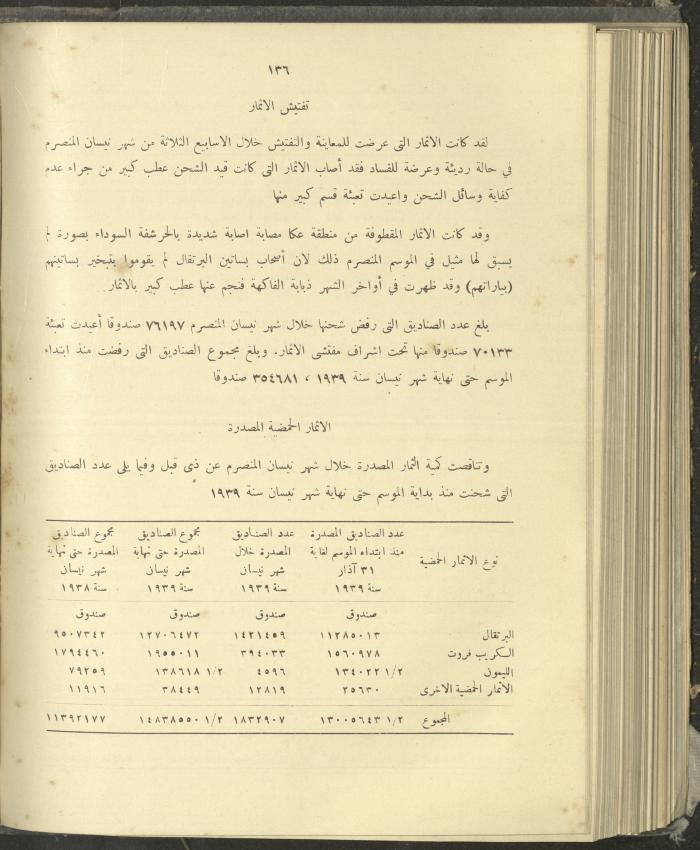 ١٣٦
تفتيش الاثمار
لقد كانت الاثمار التى عرضت للمعاينة والتفتيش خلال الاسابيع الثلاثة من شهر نيسان المنصرم
فى حالة رديئة وعرضة للفساد فقد أصاب الاثمار التى كانت قيد الشحن عطب كبير من جراء عدم
كفاية وسائل الشحن واعيدت تعبئة قسم كبير منها
وقد كانت الاثمار المقطوفة من منطقة عكا مصابة اصابة شديدة بالحرشفة السوداء بصورة لم
يسبق لها مثيل فى الموسم المنصرم ذلك لان أصحاب بساتين البرتقال لم يقوموا بتبخير بساتينهم
(بياراتهم) وقد ظهرت فى أواخر الشهر ذبابة الفاكهة فنجم عنها عطب كبير بالاثمار
بلغ عدد الصناديق التى رفض شحنها خلال شهر نيسان المنصرم ٧٦١٩٧ صندوقا أعيدت تعبئة
٧٠١٣٣ صندوقا منها تحت اشراف مفتشى الاثمار. وبلغ مجموع الصناديق التى رفضت منذ ابتداء
الموسم حتى نهاية شهر نيسان سنة ١٩٣٩ ، ٣٥٤٦٨١ صندوقا
الاثمار الحمضية المصدرة
وتناقصت كمية الثمار المصدرة خلال شهر نيسان المنصرم عن ذى قبل وفيما يلى عدد الصناديق
التى شحنت منذ بداية الموسم حتى نهاية شهر نيسان سنة ١٩٣٩
عدد الصناديق المصدرة عدد الصناديق مجموع الصناديق مجموع الصناديق
نوع الاثمار الحمضية منذ ابتداء الموسم لغاية المصدرة خلال المصدرة حتى نهاية المصدرة حتى نهاية
٣١ آذار شهر نيسان شهر نيسان شهر نيسان
سنة ١٩٣٩ سنة ١٩٣٩ سنة ١٩٣٩ سنة ١٩٣٨
صندوق صندوق صندوق صندوق
البرتقال ١١٢٨٥٠١٣ ١٤٢١٤٥٩ ١٢٧٠٦٤٧٢ ٩٥٠٧٣٤٢
السكريب فروت ١٥٦٠٩٧٨ ٣٩٤٠٣٣ ١٩٥٥٠١١ ١٧٩٤٤٦٠
الليمون ١٣٤٠٢٢ ١/٢ ٤٥٩٦ ١٣٨٦١٨ ١/٢ ٧٩٢٥٩
الاثمار الحمضية الاخرى ٢٥٦٣٠ ١٢٨١٩ ٣٨٤٤٩ ١١٩١٦
المجموع ١٣٠٠٥٦٤٣ ١/٢ ١٨٣٢٩٠٧ ١٤٨٣٨٥٥٠ ١/٢ ١١٣٩٢١٧٧